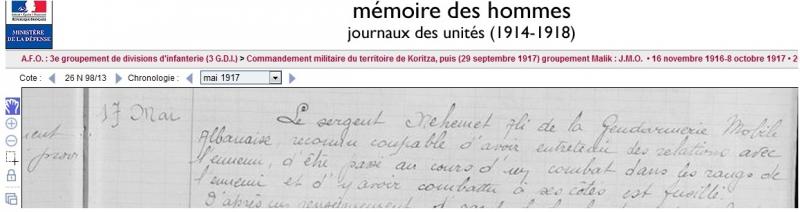 RÉPUBLIQUE FRANÇAISE
MINISTÈRE
DE LA DÉFENSE
mémoire des hommes
journaux des unités (1914-1918)
A.F.O. : 3e groupement de divisions d'infanterie (3 G.D.I.) > Commandement militaire du territoire de Koritza, puis (29 septembre 1917) groupement Malik : J.M.O. • 16 novembre 1916-8 octobre 1917 • 2
Cote : 26 N 98/13 Chronologie : mai 1917
17 Mai Le sergent Mehemet Ali de la Gendarmerie Mobile
Albanaise, reconnu coupable d'avoir entretenu des relations avec
l'ennemi, d'être passé au cours d'un combat dans les rangs de
l'ennemi et d'y avoir combattu à ses côtés est fusillé.
D'après un renseignement